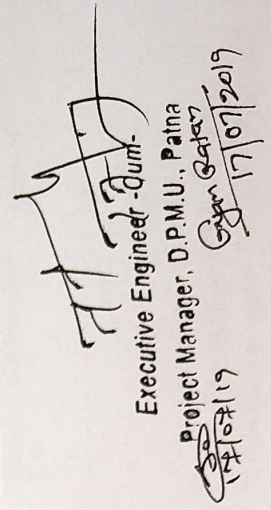 Executive Engineer -Qum-
Project Manager, D.P.M.U., Patna
17/07/19
Gyan Ratan
17/07/2019